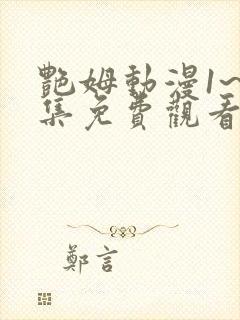 艷姆動漫1~
集免費觀看
鄭言